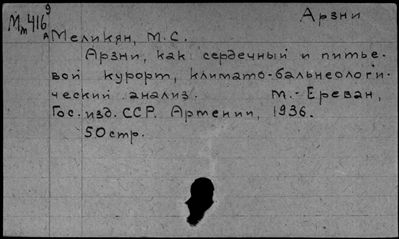 Арзни
Мм416⁹
Меликян, М.С.
Арзни, как сердечный и питье-
вой курорт, климато-бальнеологи-
ческий анализ. м.- Ереван,
Гос. изд. ССР. Армении, 1936.
50стр.